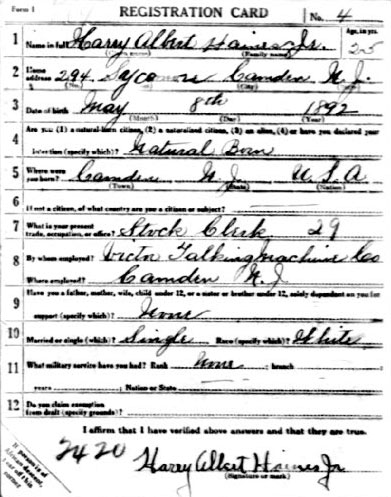 Form 1 REGISTRATION CARD No. 4
1 Name in full Harry Albert Haines Jr. Age, in yrs. 25
(Given name) (Family name)
2 Home address 294 Sycamore Camden N. J.
(No.) (Street) (City) (State)
3 Date of birth May 8th 1892
(Month) (Day) (Year)
4 Are you (1) a natural-born citizen, (2) a naturalized citizen, (3) an alien, (4) or have you declared your
intention (specify which)? Natural Born
5 Where were you born? Camden N. J. U. S. A
(Town) (State) (Nation)
6 If not a citizen, of what country are you a citizen or subject?
7 What is your present trade, occupation, or office? Stock Clerk 29
8 By whom employed? Victor Talking Machine Co
Where employed? Camden N. J
9 Have you a father, mother, wife, child under 12, or a sister or brother under 12, solely dependent on you for
support (specify which)? None
10 Married or single (which)? Single Race (specify which)? White
11 What military service have you had? Rank None ; branch
years ; Nation or State
12 Do you claim exemption from draft (specify grounds)?
I affirm that I have verified above answers and that they are true.
2420 Harry Albert Haines Jr
(Signature or mark)
If person is of
African descent
tear off this
corner